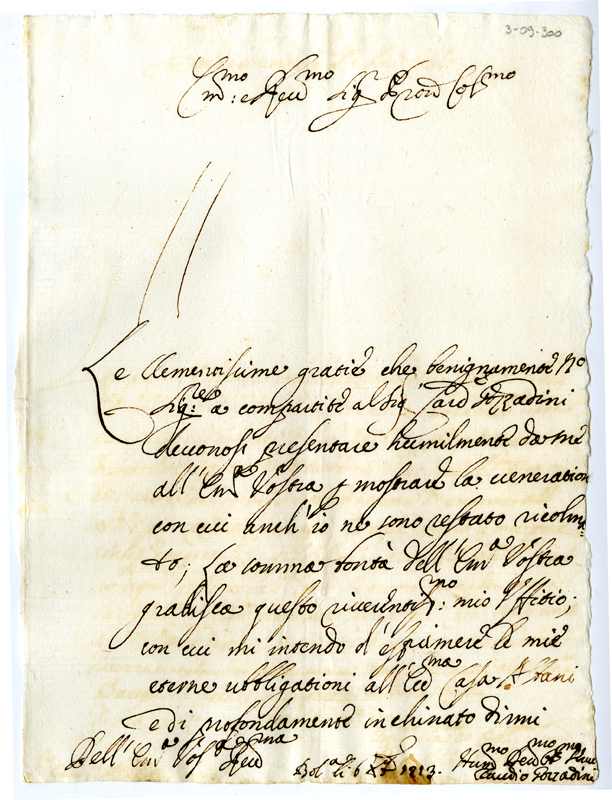 3-09-300
Em:mo e Reu:mo Sig:r Pron Col:mo
Le clementissime gratie che benignamente N:o
Sig:re à compartite al Sig Card Gozzadini
deuonosi presentare humilmente da me
all'Em:a Vostra p mostrare la ueneratione
con cui anch'io ne sono restato ricolm
to; La somma bontà dell'Em:a Vostra
gradisca questo riuerentis:mo mio Vffitio;
con cui mi intendo d'esprimere le mie
eterne obbligationi all'Ecc:ma Casa Albani
e di profondamente inchinato dirmi
Dell'Em:a Vos:a Reu:ma
Bol:a li 6 1713.
Hum:mo Deu:mo Ob:mo
Claudio Gozzadini